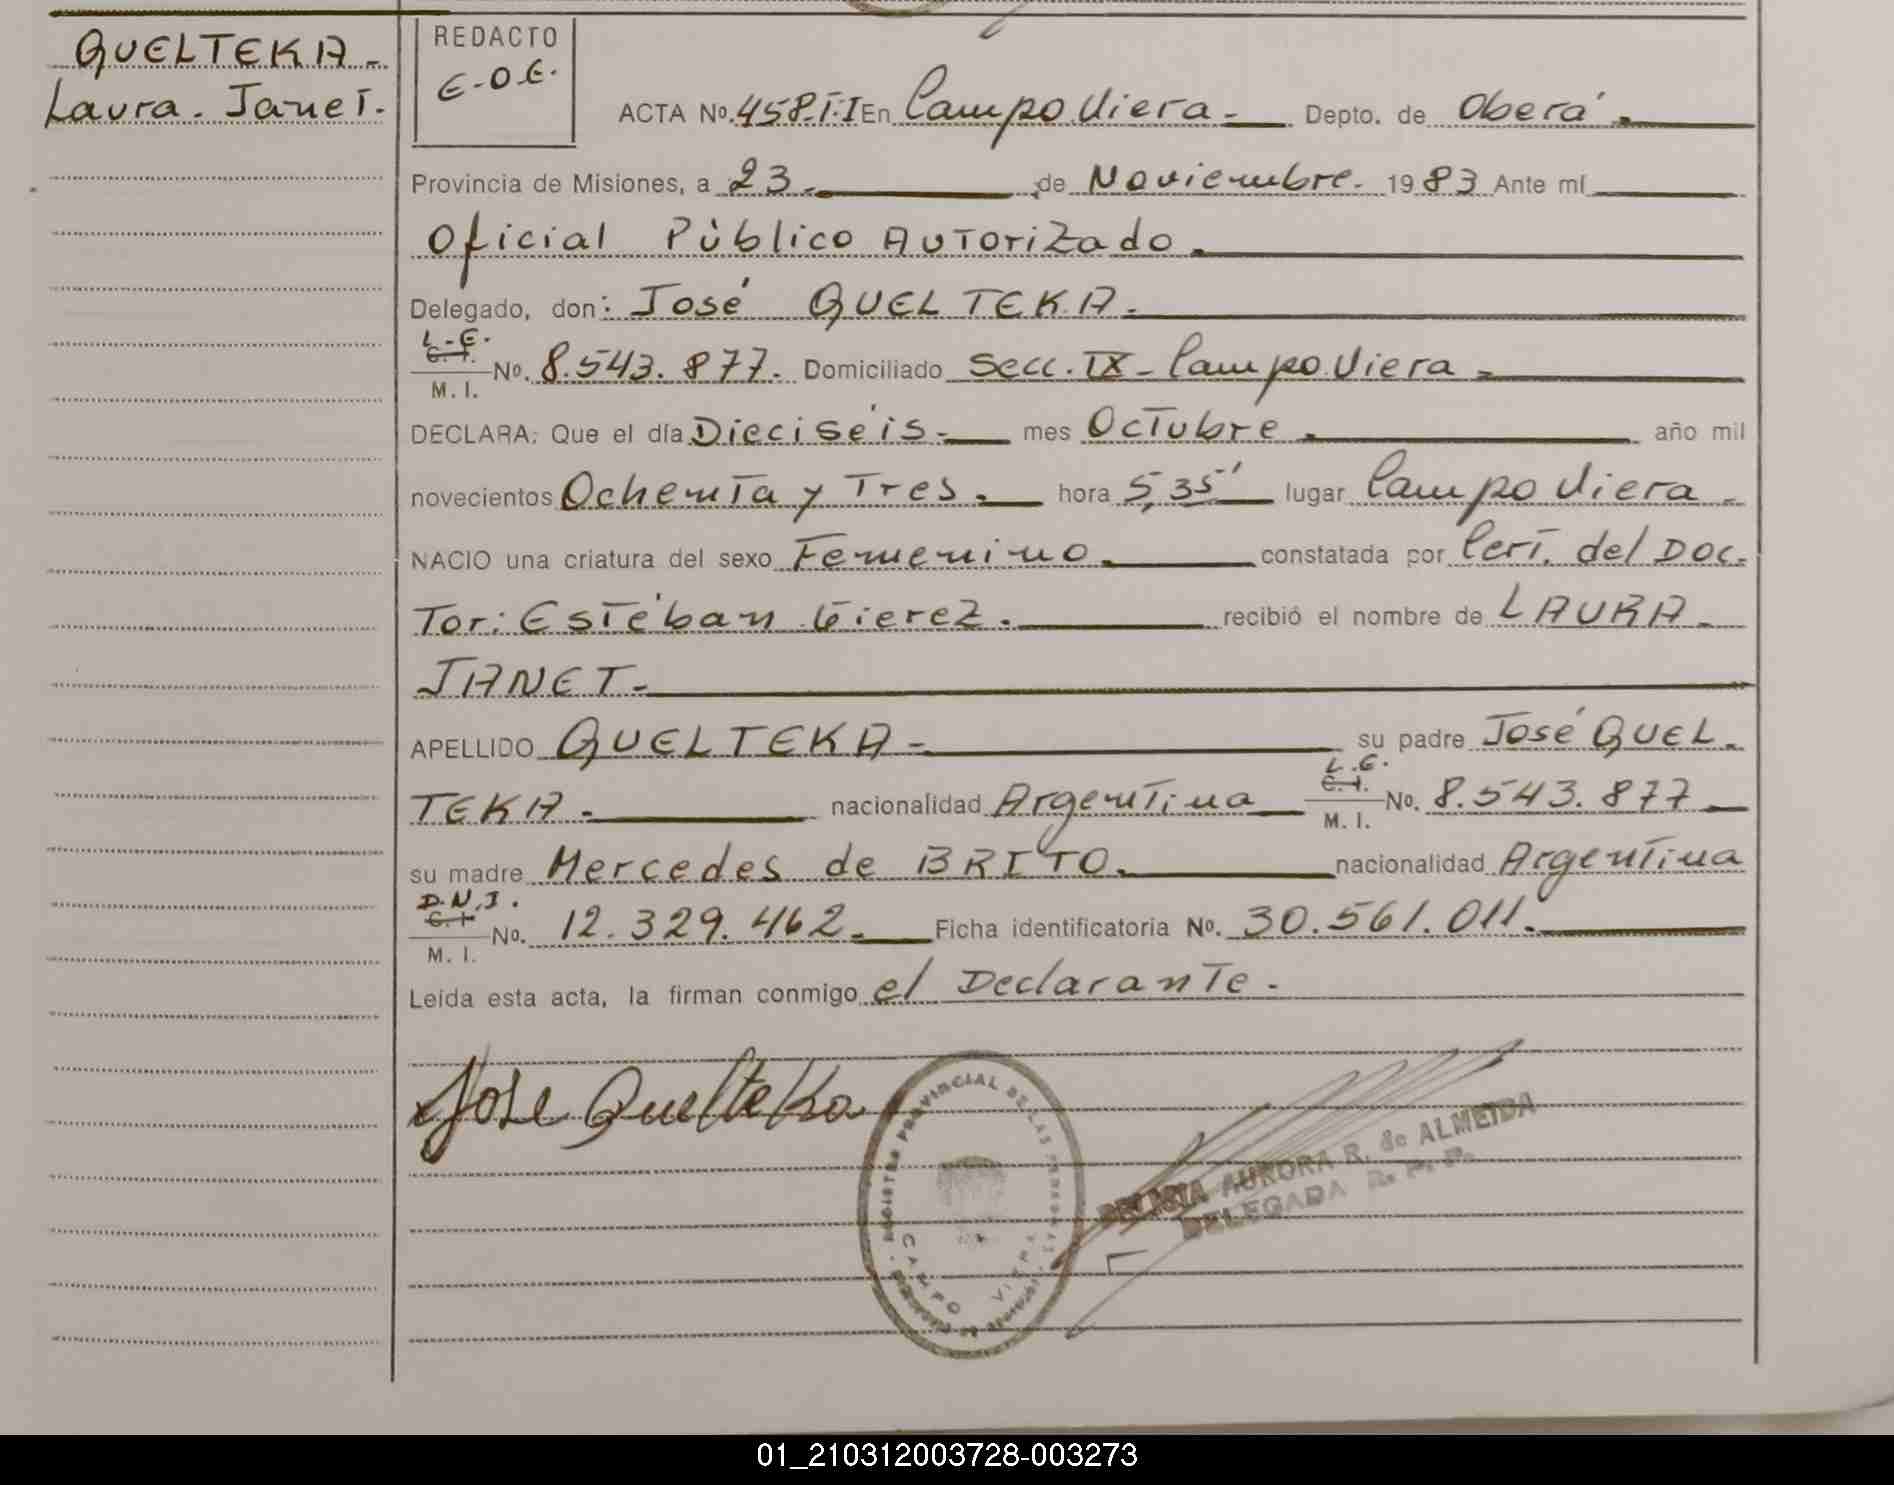 QUELTEKA-
Laura. Janet.
REDACTO
E-O-E.
ACTA No. 458-T-I En Campo Viera- Depto. de Oberá.
Provincia de Misiones, a 23. de Noviembre. 1983 Ante mí
Oficial Público Autorizado.
Delegado, don: José QUELTEKA.
L-E.
C. I.
M. I. No. 8.543.877. Domiciliado Secc. IX- Campo Viera-
DECLARA: Que el día Dieciséis- mes Octubre. año mil
novecientos Ochenta y Tres. hora 5,35' lugar Campo Viera-
NACIO una criatura del sexo Femenino. constatada por Cert. del Doc-
Tor: Estéban Gierez. recibió el nombre de LAURA-
JANET-
APELLIDO QUELTEKA- su padre José QUEL-
L.E.
C. I.
TEKA- nacionalidad Argentina M. I. No. 8.543.877
su madre Mercedes de BRITO. nacionalidad Argentina
D.N.I.
C. I.
M. I. No. 12.329.462. Ficha identificatoria No. 30.561.011.
Leída esta acta, la firman conmigo el Declarante-
Jose Quelteka
REGISTRO PROVINCIAL DE LAS PERSONAS
CAMPO VIERA
AURORA R. de ALMEIDA
DELEGADA R. P. P.
01_210312003728-003273